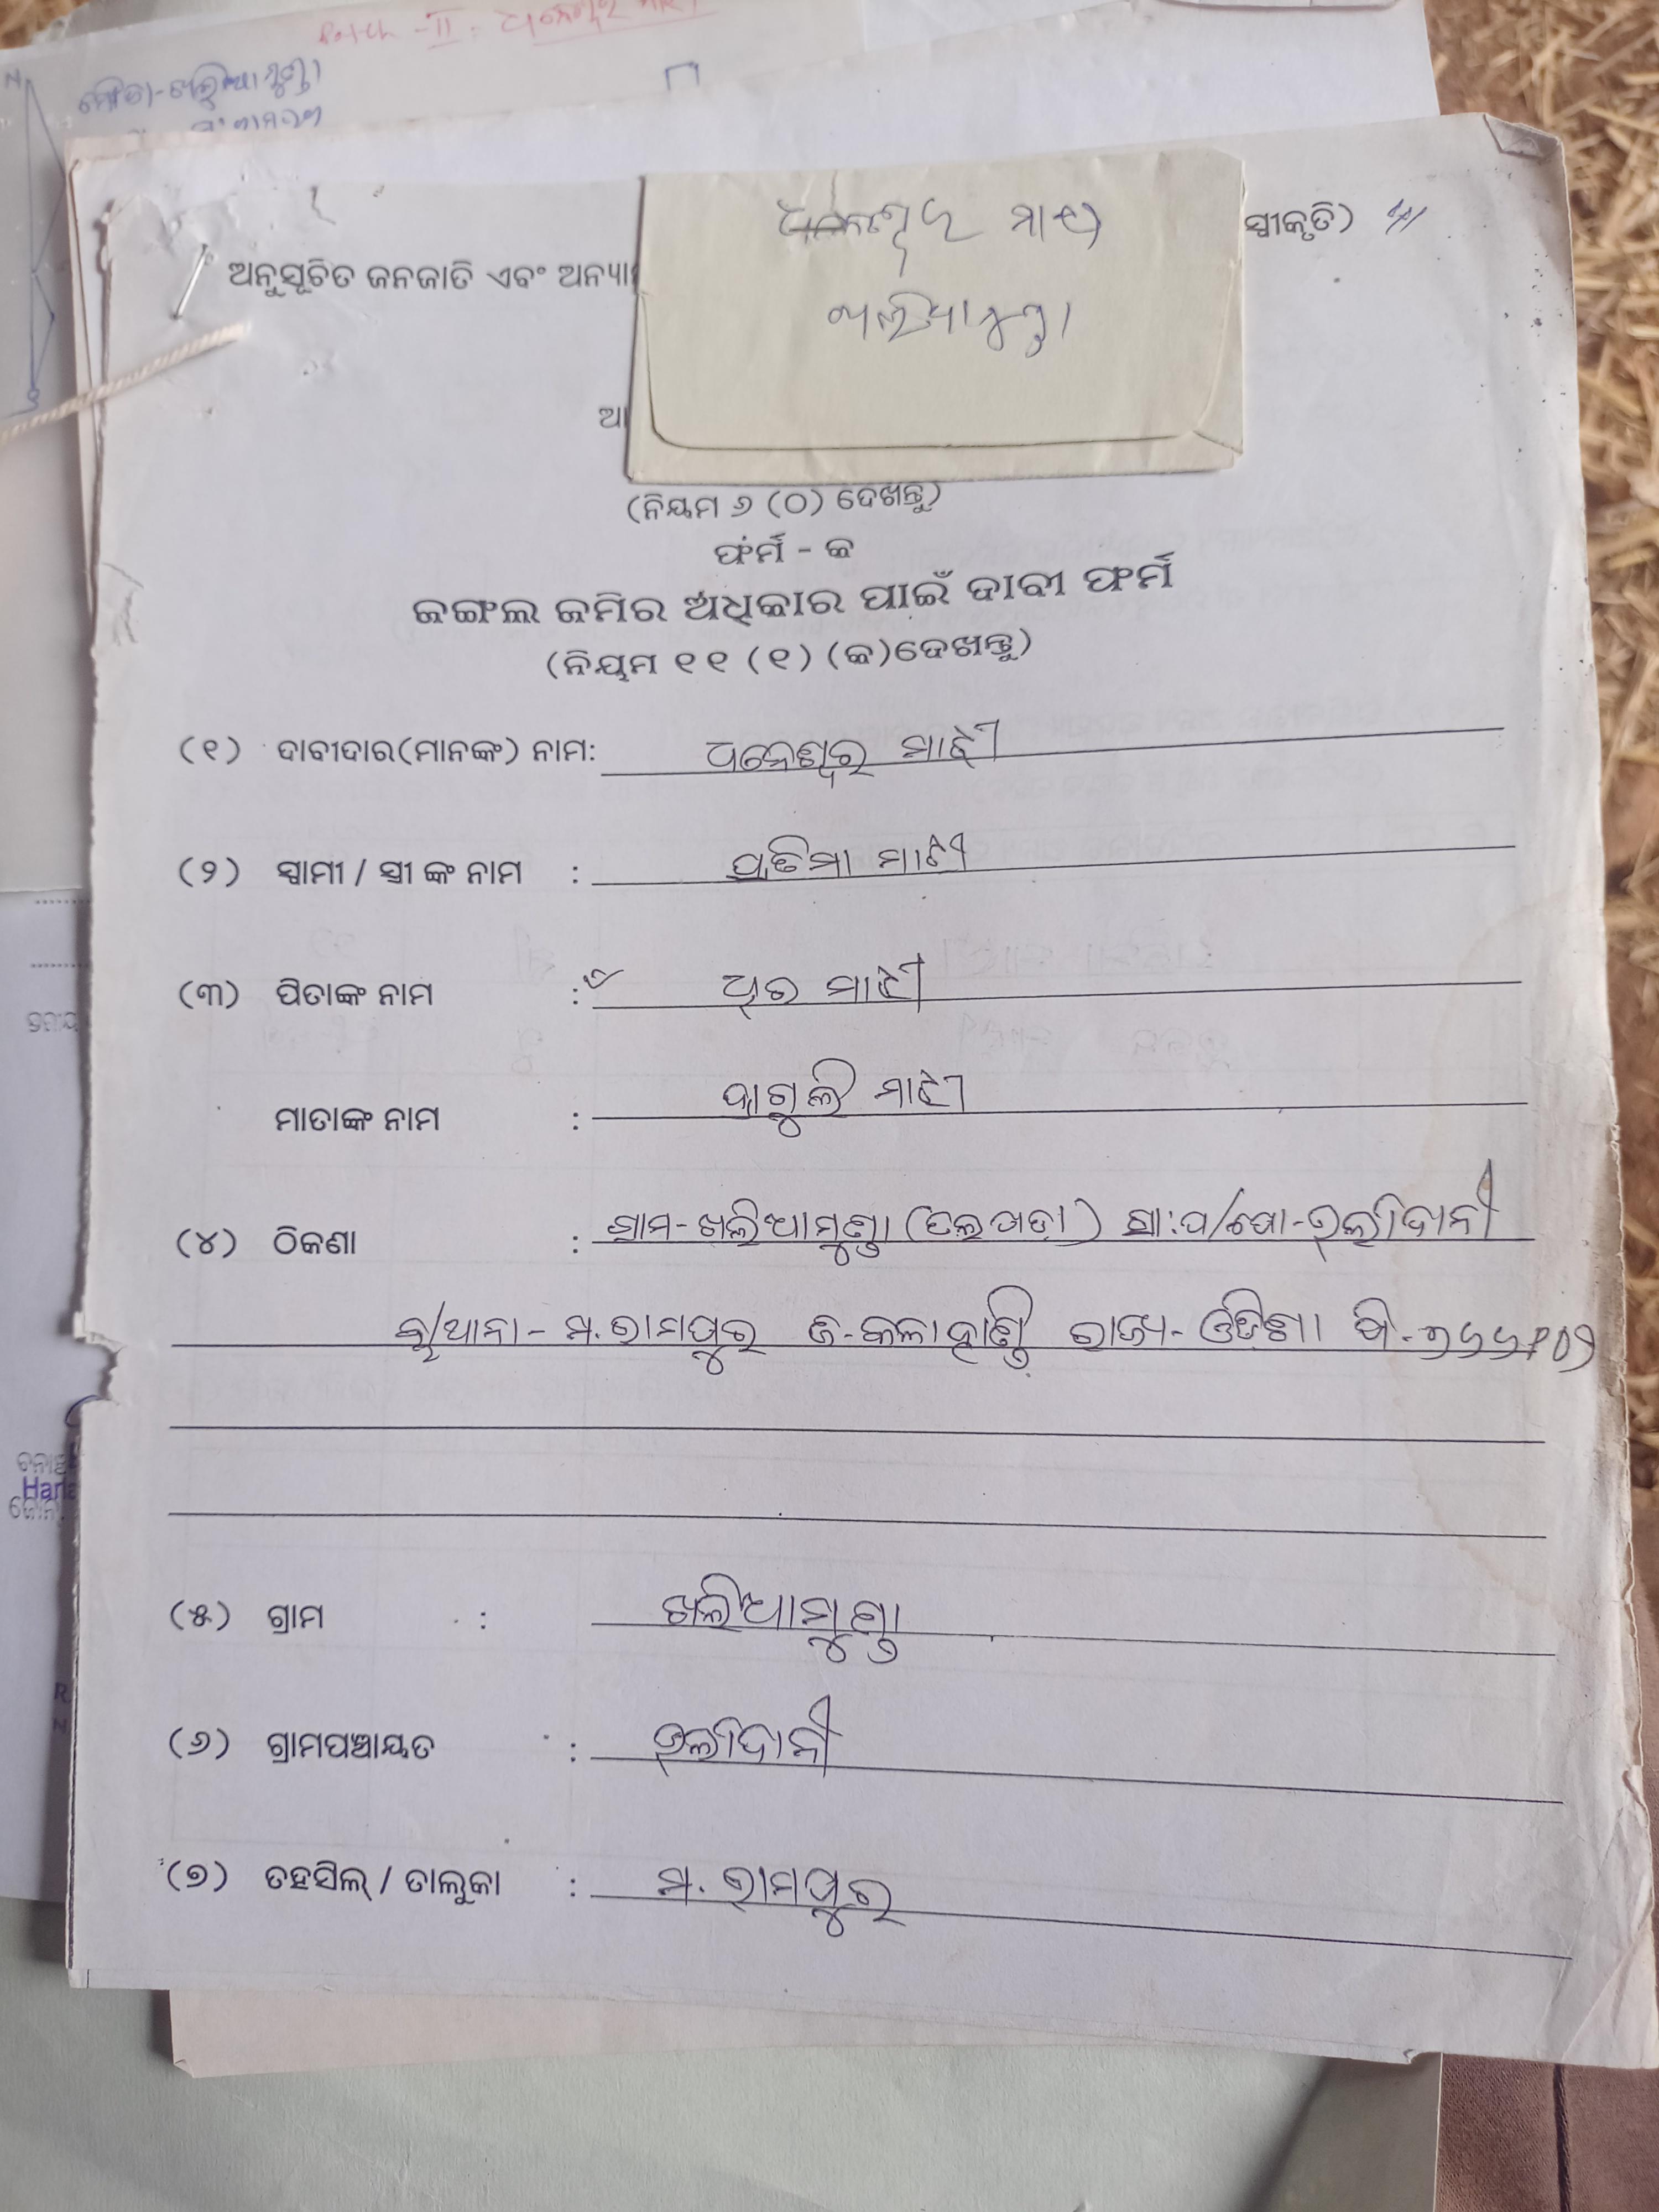 ମୌଜା-ଖଲିଆମୁଣ୍ଡା
ଧନେଶ୍ୱର ମାଝୀ
ଖଲିଆମୁଣ୍ଡା
ସ୍ୱୀକୃତି)
ଅନୁସୂଚିତ ଜନଜାତି ଏବଂ ଅନ୍ୟା
ଆ
(ନିୟମ ୬ (୦) ଦେଖନ୍ତୁ)
ଫର୍ମ - କ
ଜଙ୍ଗଲ ଜମିର ଅଧିକାର ପାଇଁ ଦାବୀ ଫର୍ମ
(ନିୟମ ୧୧ (୧) (କ)ଦେଖନ୍ତୁ)
(୧) ଦାବୀଦାର(ମାନଙ୍କ) ନାମ: ଧନେଶ୍ୱର ମାଝୀ
(୨) ସ୍ୱାମୀ / ସ୍ତ୍ରୀ ଙ୍କ ନାମ : ପ୍ରତିମା ମାଝୀ
(୩) ପିତାଙ୍କ ନାମ : ଥିର ମାଝୀ
ମାତାଙ୍କ ନାମ : ଦାଗୁଲି ମାଝୀ
(୪) ଠିକଣା : ଗ୍ରାମ-ଖଲିଆମୁଣ୍ଡା (ତଲପଡା) ଗ୍ରା:ପ/ପୋ-ଉଲୀଦାନୀ
ବ୍ଲ/ଥାନା - ମ.ରାମପୁର ଜି-କଳାହାଣ୍ଡି ରାଜ୍ୟ- ଓଡିଶା ପି-୭୬୬୧୦୨
(୫) ଗ୍ରାମ : ଖଲିଆମୁଣ୍ଡା
(୬) ଗ୍ରାମପଞ୍ଚାୟତ : ଉଲୀଦାନୀ
(୭) ତହସିଲ୍ / ତାଲୁକା : ମ. ରାମପୁର